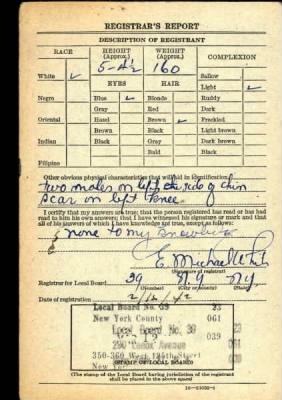 REGISTRAR'S REPORT
DESCRIPTION OF REGISTRANT
RACE HEIGHT (Approx.) WEIGHT (Approx.) COMPLEXION
5-4½ 160
White ✓ Sallow
EYES HAIR Light ✓
Negro Blue ✓ Blonde Ruddy
Gray Red Dark
Oriental Hazel Brown ✓ Freckled
Brown Black Light brown
Indian Black Gray Dark brown
Bald Black
Filipino
Other obvious physical characteristics that will aid in identification
two moles on left side of chin
scar on left
I certify that my answers are true; that the person registered has read or has had
read to him his own answers; that I have witnessed his signature or mark and that
all of his answers of which I have knowledge are true, except as follows:
none to my knowledge
E. Michael White
(Signature of registrar)
Registrar for Local Board 39 N.Y. N.Y.
(Number) (City or county) (State)
Date of registration 2/16/42
Local Board No. 39 23
New York County 061
Local Board No. 39 23
039
290 Lenox Avenue
350-360 West 125th Street
New York 039
(STAMP OF LOCAL BOARD)
(The stamp of the Local Board having jurisdiction of the registrant
shall be placed in the above space)